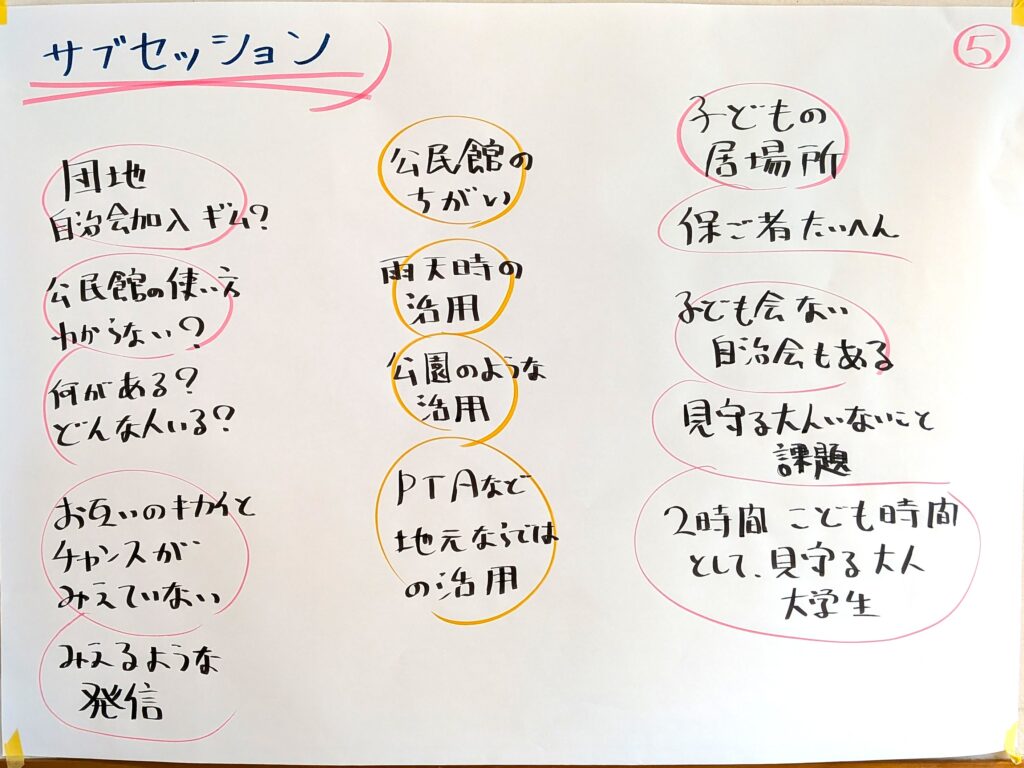 サブセッション
⑤
団地
自治会加入 ギム?
公民館の使い方
わからない?
何がある?
どんな人いる?
お互いのキカイと
チャンスが
みえていない
みえるような
発信
公民館の
ちがい
雨天時の
活用
公園のような
活用
PTAなど
地元ならでは
の活用
子どもの
居場所
保ご者たいへん
子ども会ない
自治会もある
見守る大人いないこと
課題
2時間 こども時間
として、見守る大人
大学生